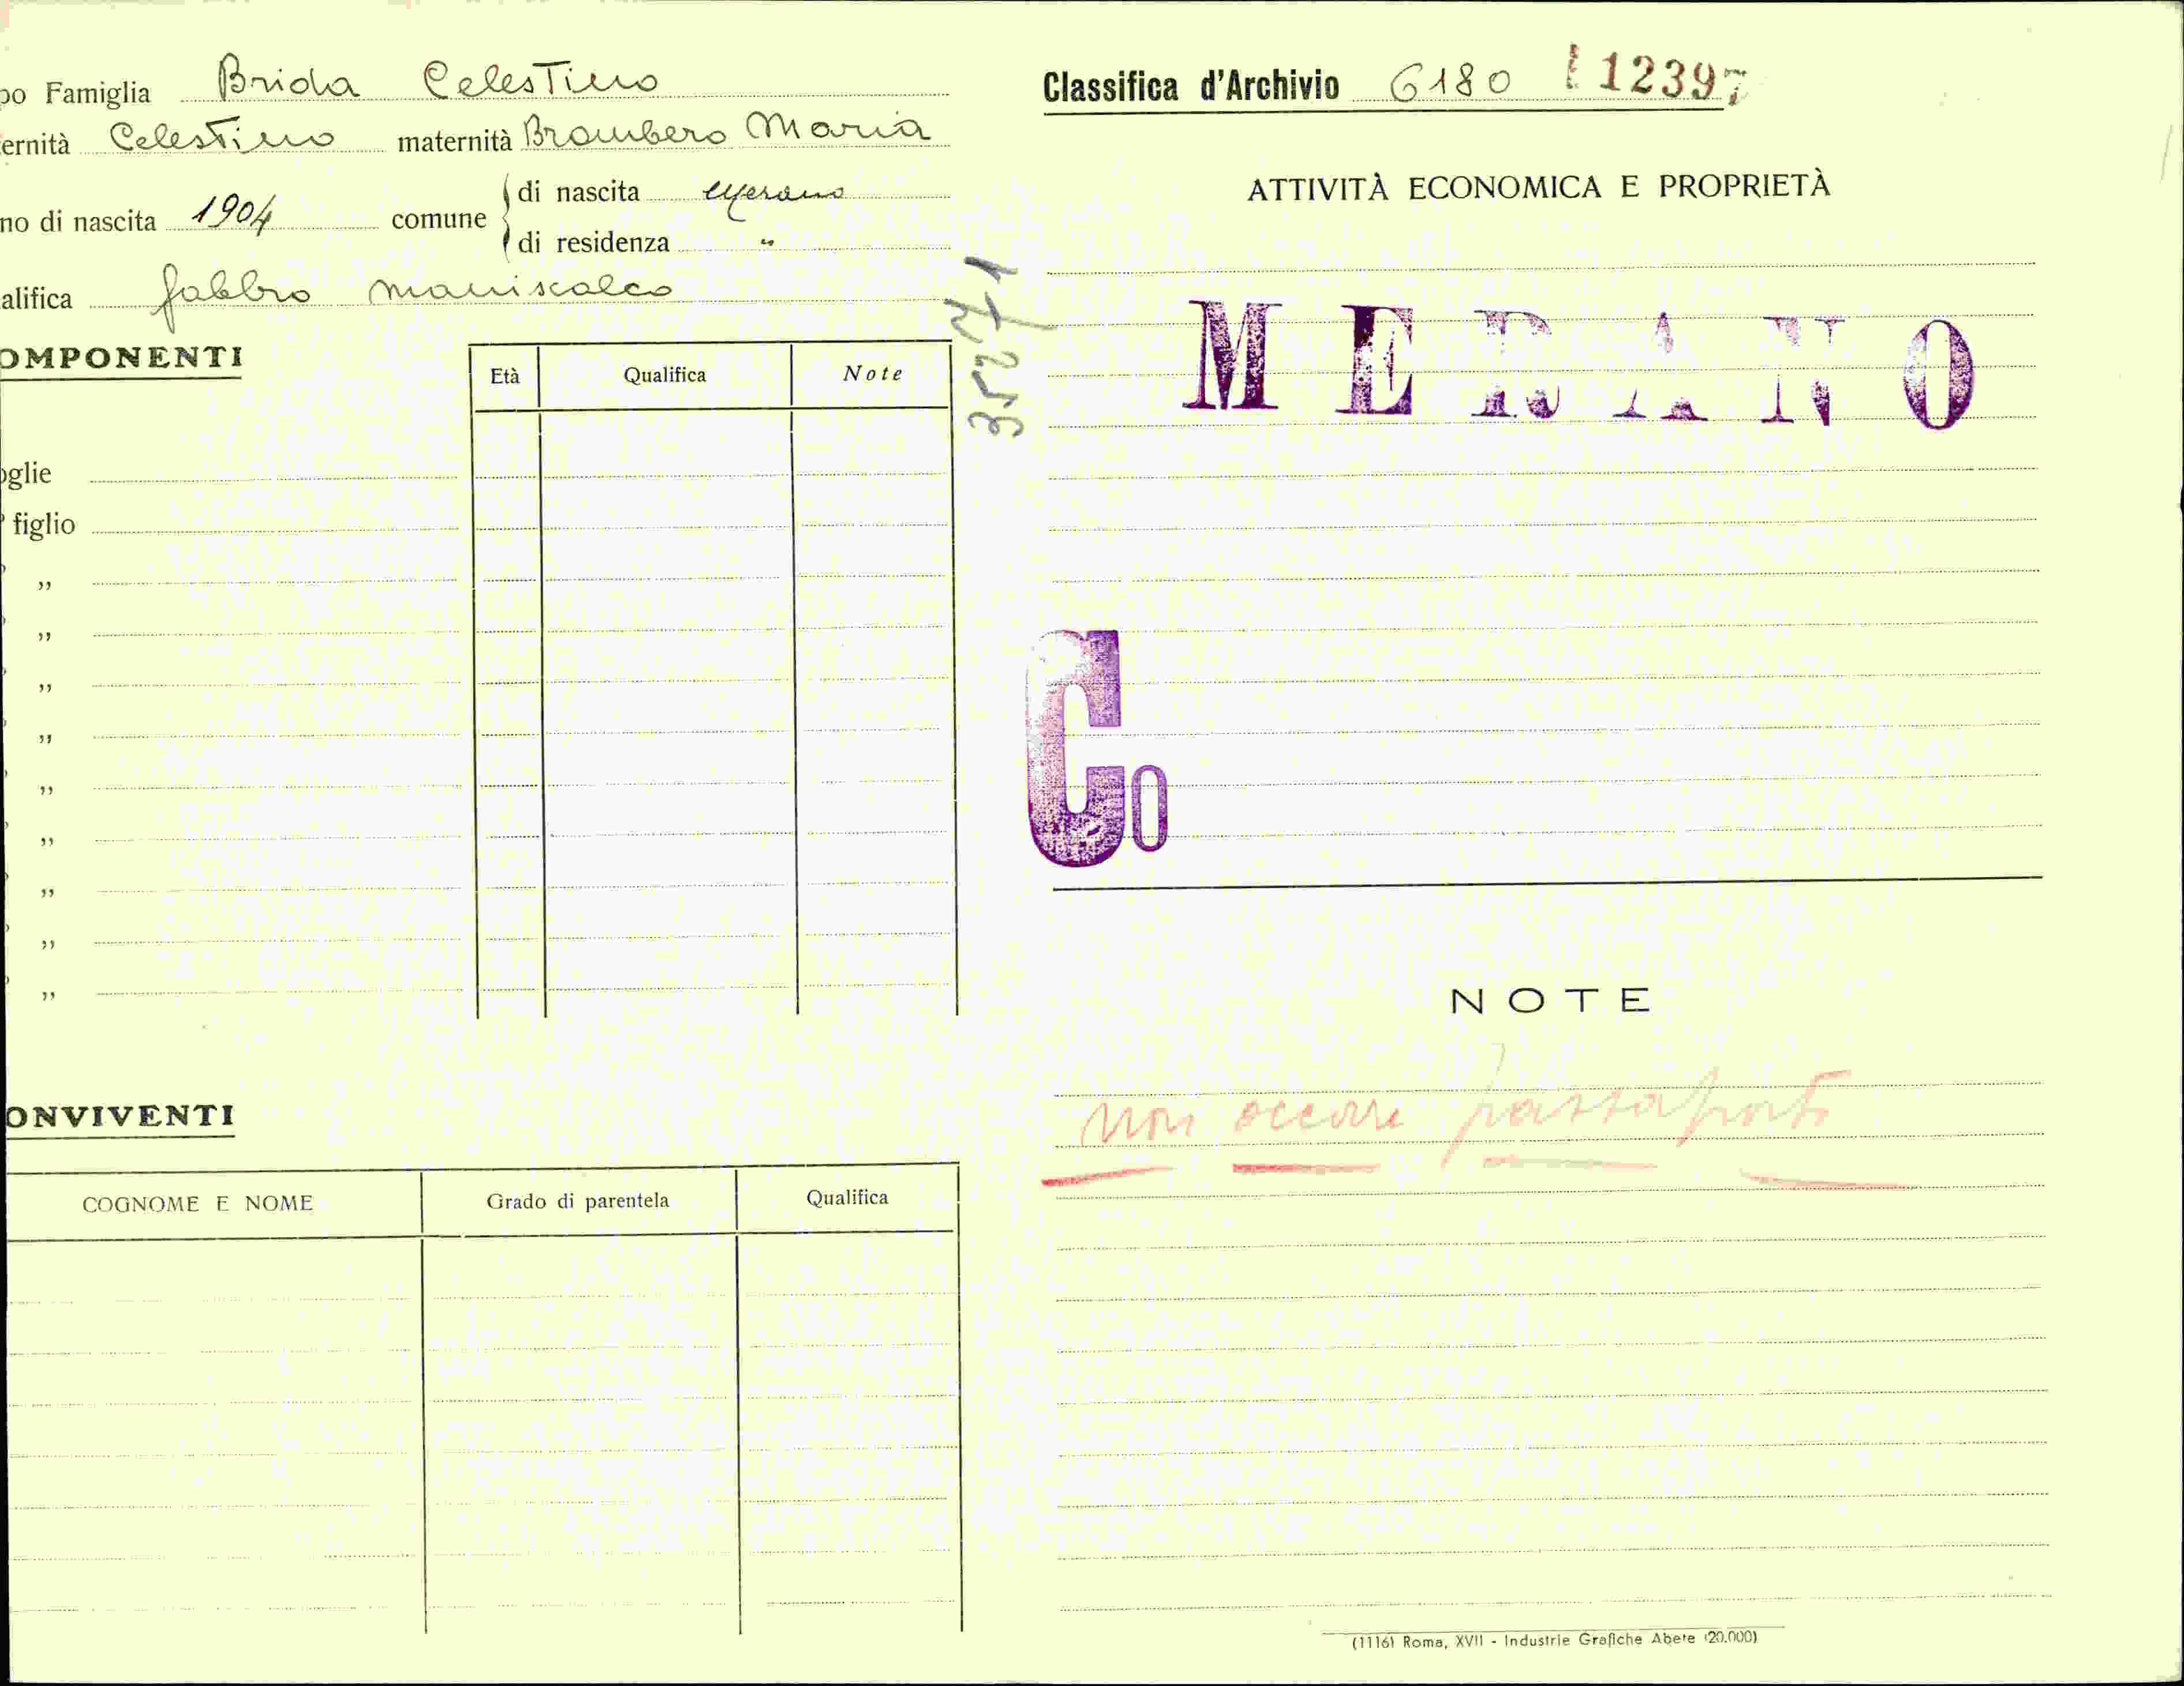 po Famiglia Brida Celestino
ernità Celestino maternità Brombero Maria
no di nascita 1904 comune di nascita Merano
di residenza "
alifica fabbro maniscalco
OMPONENTI
Età Qualifica Note
oglie
figlio
"
"
"
"
"
"
"
"
"
ONVIVENTI
COGNOME E NOME Grado di parentela Qualifica
Classifica d'Archivio 6180 12397
ATTIVITÀ ECONOMICA E PROPRIETÀ
MERANO
Co
NOTE
non occorre passaporto
(1116) Roma, XVII - Industrie Grafiche Abete (20.000)